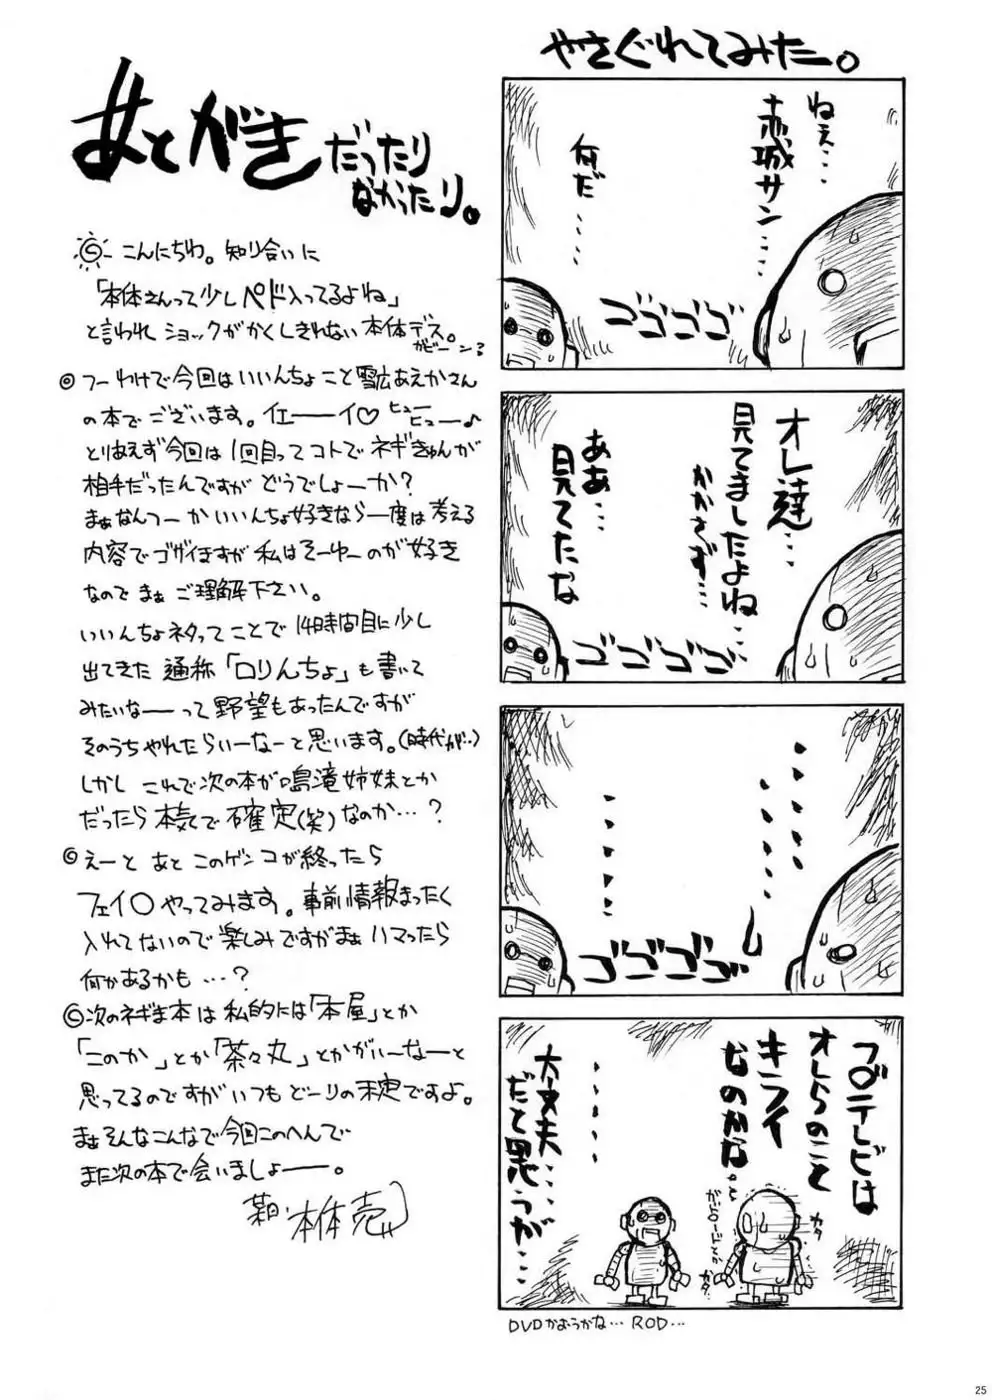 あとがきだったり
なかったり。
こんにちわ。知り合いに
「本体さんって少しペド入ってるよね」
と言われ ショックがかくしきれない 本体デス。
ガビーン
◎ つーわけで今回はいいんちょこと雪広あえかさん
の本でございます。イエーーイ♡ ヒューヒュー♪
とりあえず今回は1回目ってコトでネギきゅんが
相手だったんですが どうでしょーか？
まぁなんつーか いいんちょ好きなら一度は考える
内容でゴザイますが 私はそーゆーのが好き
なので まぁ ご理解下さい。
いいんちょネタってことで 14時間目に少し
出てきた 通称「ロリんちょ」も書いて
みたいなーーって 野望もあったんですが
そのうちやれたらいーなーと思います。(時代が…)
しかし これで次の本が鳴滝姉妹とか
だったら 本気で 確定(笑)なのか…？
◎えーと あと このゲンコが終ったら
フェイ〇やってみます。事前情報まったく
入れてないので楽しみですがまぁハマったら
何かあるかも…？
◎次のネギま本は私的には「本屋」とか
「このか」とか「茶々丸」とかがいーなーと
思ってるのですがいつもどーりの未定ですよ。
まぁそんなこんなで今回このへんで
また次の本で会いましょーー。
本体売
やさぐれてみたー。
ねぇ…
赤城サン…
何だ……
ゴゴゴゴゴ
オレ達…
見てましたよね…
かかさず…
ああ…
見てたな
ゴゴゴゴゴ
……
……
ゴゴゴゴゴ
フ〇テレビは
オレらのこと
キライ
なのかな。
ガ〇ードとか
カタ
カタ
……
大丈夫…
だと思うが…
DVDかおうかな… ROD…
25